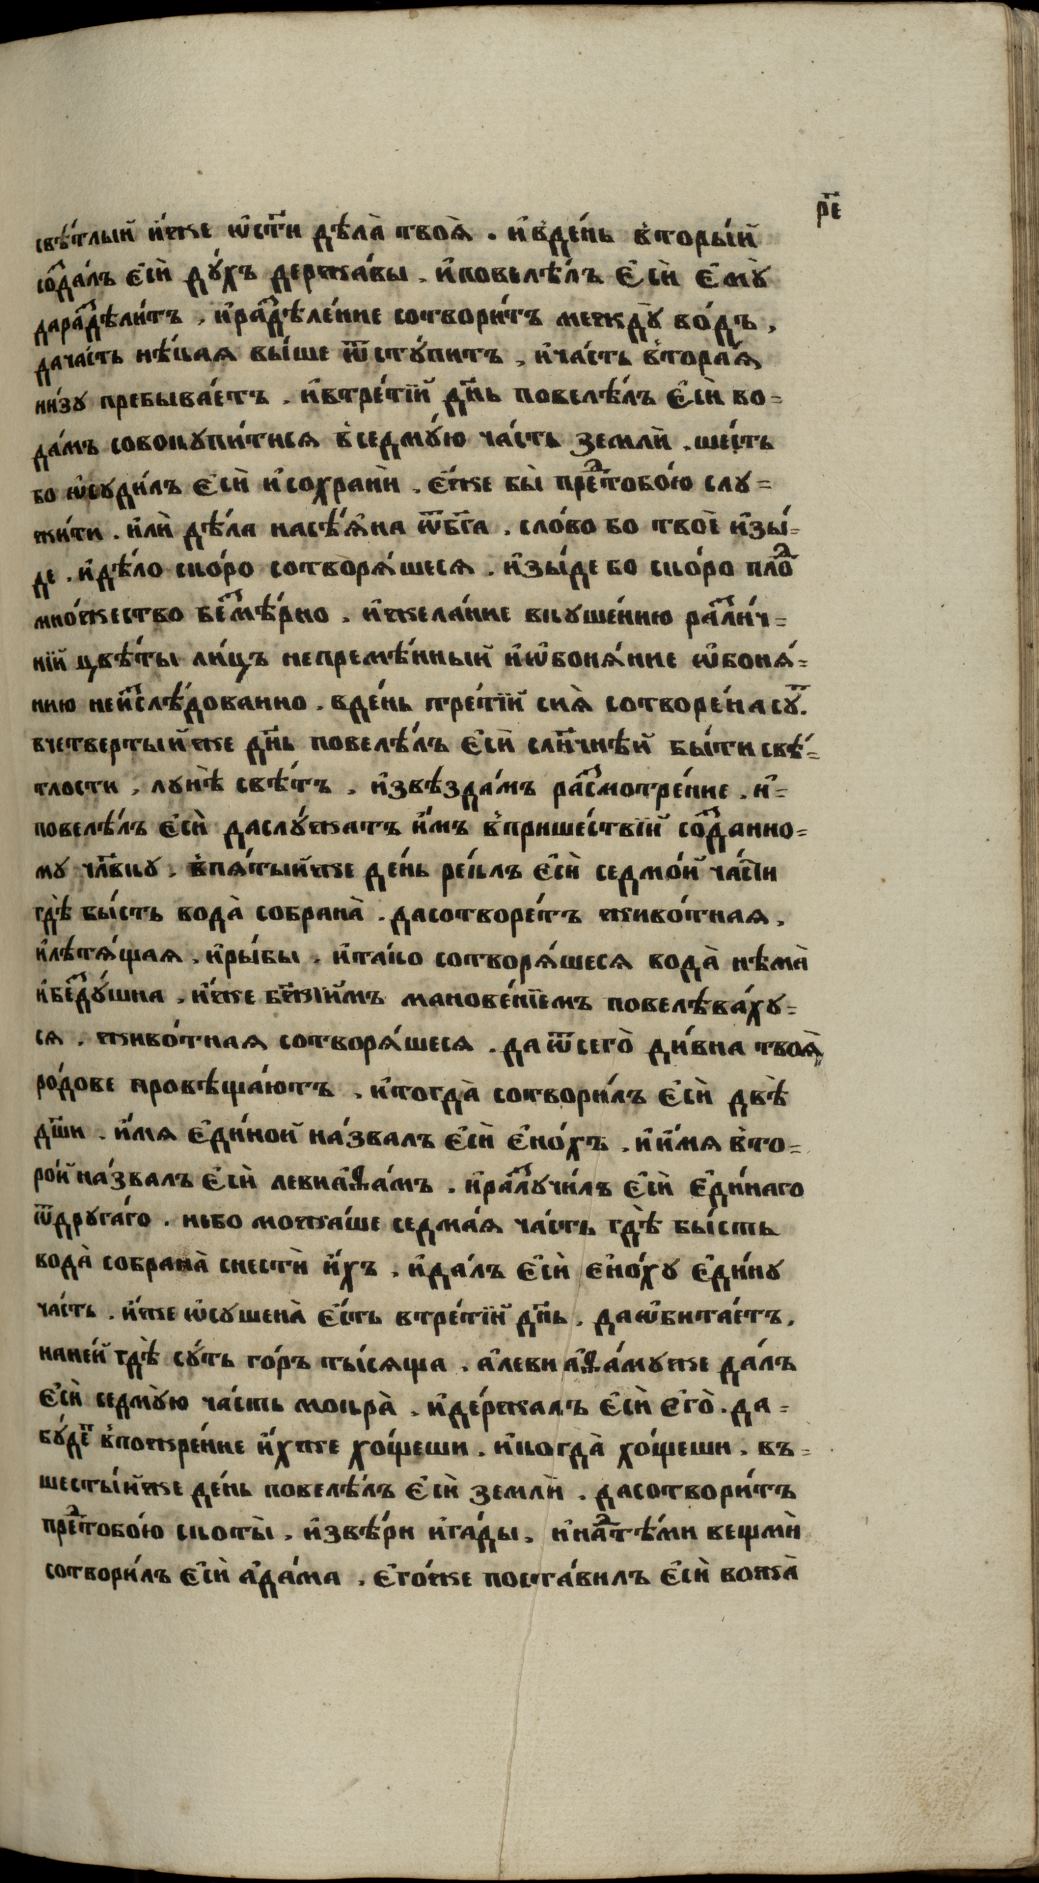 р҃е
свѣ́тлый и҆́же ѡ҆сти дѣла̀ твоя̀ . и҆вде́нь вторы́й
со́здалъ є҆сѝ ду́хъ держа́вы . и҆повелѣ́лъ є҆сѝ є҆мꙋ̀
даразⷣѣли́тъ , и҆разⷣѣле́ние сотвори́тъ междꙋ̀ во́дъ ,
дача́сть нѣ́кая вы́ше ѿстꙋ́питъ , и҆ча́сть втора́я
ни́зꙋ пребыва́етъ . и҆втре́тїй дн҃ь повелѣ́лъ є҆сѝ во=
да́мъ совокꙋпи́тися в̾седмꙋ́ю ча́сть землѝ . ше́сть
бо ѡ҆сꙋди́лъ є҆сѝ и҆сохранѝ . є҆́же бы̀ преⷣтобо́ю слꙋ=
жи́ти . и҆лѝ дѣ́ла насѣ́яна ѿбг҃а . сло́во бо твоѐ и҆зы́=
де . и҆дѣ́ло ско́ро сотворя́шеся . и҆зы́де бо ско́ро плоⷣ
мно́жество безⷨмѣ́рно . и҆жела́ние вкꙋше́нию разли́ч=
нїй цвѣ́ты ли́цъ непремѣ́нный и҆ѡ҆боня́ние ѡ҆боня́=
нию неи҆зслѣ́дованно . вде́нь тре́тїй сия̀ сотворе́на сꙋⷮ .
вчетвертыйже дн҃ь повелѣ́лъ є҆сѝ сл҃нчнѣй бы́ти свѣ́=
тлости , лꙋнѣ̀ свѣ́тъ , и҆звѣзда́мъ разсмотре́ние . и҆=
повелѣ́лъ є҆сѝ даслꙋ́жатъ и҆̀мъ в̾прише́ствїй создан̾но=
мꙋ чл҃вкꙋ . в̾пя́тыйже де́нь ре́клъ є҆сѝ седмо́й ча́сти
гдѣ̀ бы́сть вода̀ собрана̀ . дасотворе́тъ живо́тная ,
и҆лѣтя́щая , и҆ры́бы . и҆та́ко сотворя́шеся вода̀ нѣма̀
и҆бездꙋ́шна , и҆́же бж҃їимъ манове́нїемъ повелѣва́хꙋ=
ся . живо́тная сотворя́шеся . да ѿсего̀ ди́вна твоя̀
ро́дове провѣща́ютъ . и҆тогда̀ сотвори́лъ є҆сѝ двѣ̀
дш҃и . и҆́мя є҆ди́ной на́звалъ є҆сѝ є҆но́хъ . и҆и҆́мя в̾то=
ро́й на́звалъ є҆сѝ левиа҆ѳа́мъ . и҆разлꙋчи́лъ є҆сѝ є҆ди́наго
ѿдрꙋга́го . не́бо можа́ше седма́я ча́сть гдѣ̀ бы́сть
вода̀ собрана̀ снестѝ и҆́хъ . и҆да́лъ є҆сѝ є҆но́хꙋ є҆ди́нꙋ
ча́сть . и҆́же ѡ҆сꙋшена̀ є҆́сть втре́тїй дн҃ь . даѡ҆бита́етъ .
нане́й гдѣ̀ сꙋ́ть го́ръ ты́сяща . а҆левиа҆ѳа́мꙋже да́лъ
є҆сѝ седмꙋ̀ю ча́сть мокра̀ . и҆де́ржалъ є҆сѝ є҆го̀ . да=
бꙋ́деⷮ в̾пожре́ние и҆́хже хо́щеши . и҆когда̀ хо́щеши . въ=
шесты́йже де́нь повелѣ́лъ є҆сѝ землѝ . дасотвори́тъ
преⷣтобо́ю скоты̀ . и҆звѣ́ри и҆га́ды . и҆наⷣтѣ́ми вещмѝ
сотвори́лъ є҆сѝ а҆да́ма . є҆го́же поста́вилъ є҆сѝ вожа̀